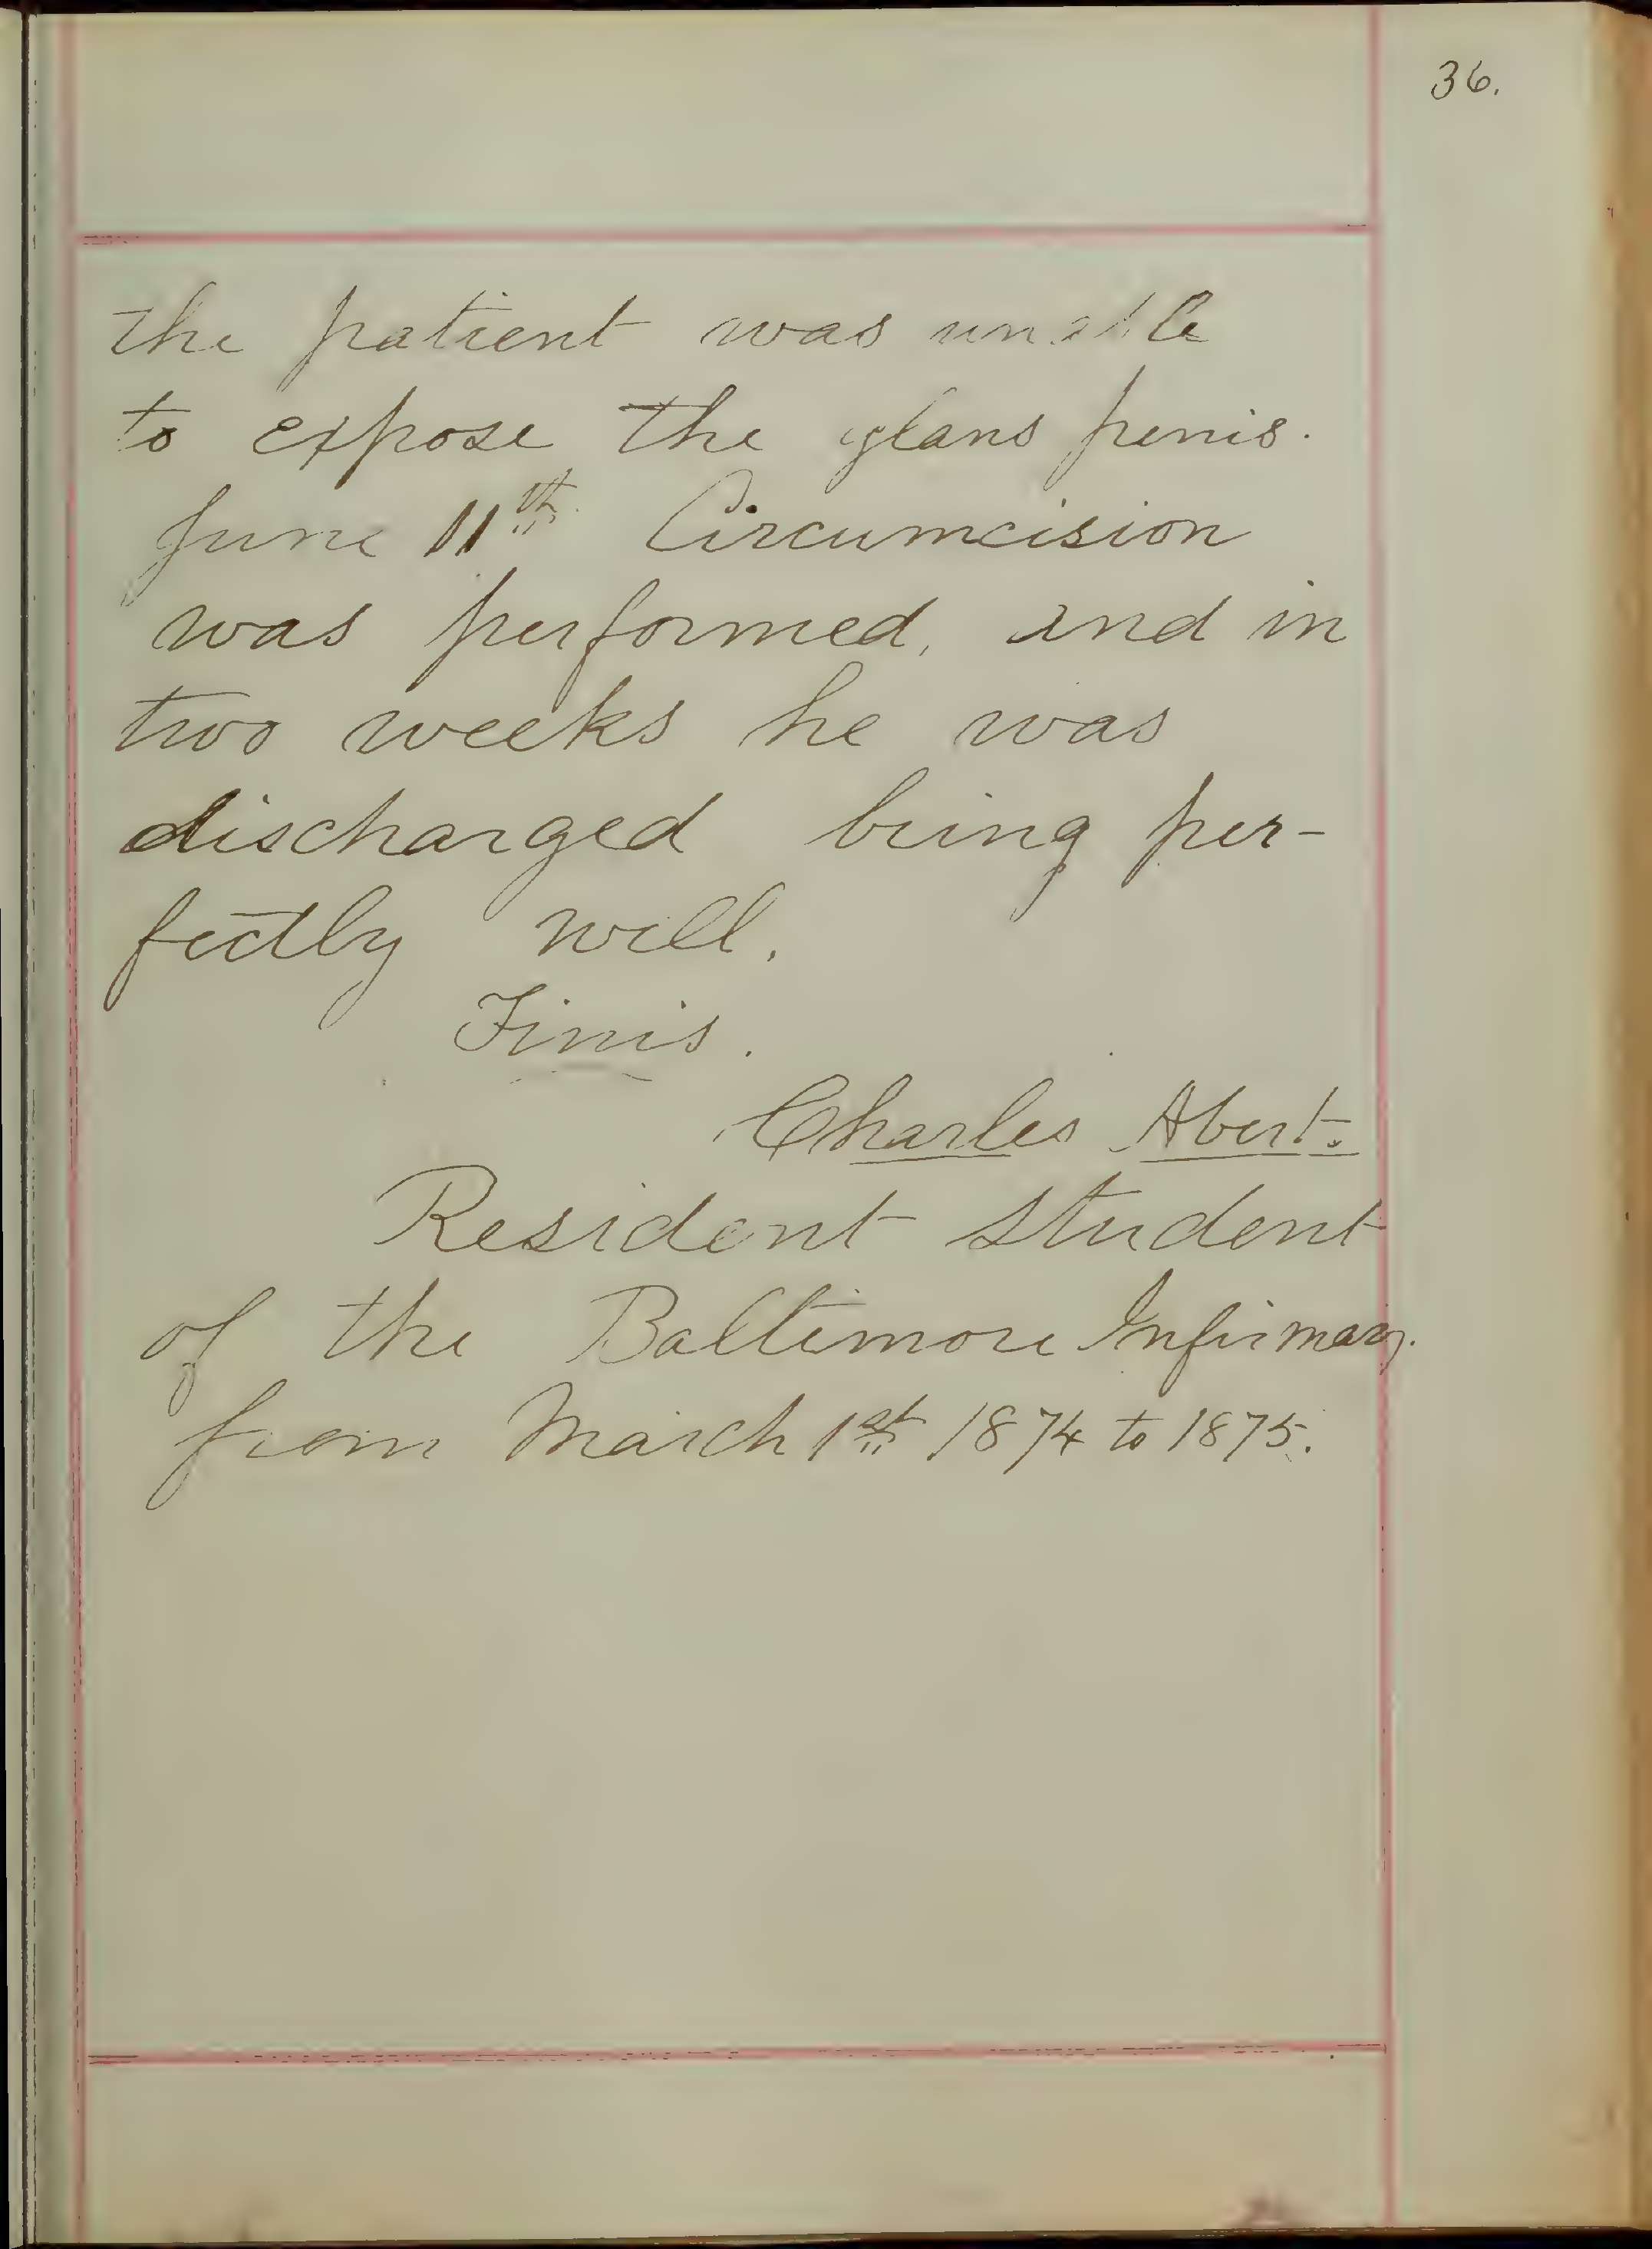 36.
the patient was unable
to expose the glans penis.
June 11th Circumcision
was performed, and in
two weeks he was
discharged being per-
fectly well.
Finis.
Charles Abert.
Resident student
of the Baltimore Infirmary.
from March 1st 1874 to 1875.